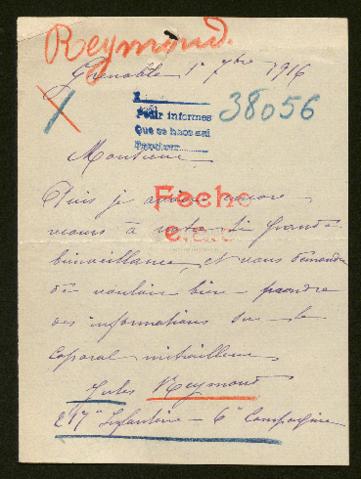 Reymond.
Grenoble 1er 7bre 1916
38056
Pedir informes
Que se hace saí
Monsieur
Fecho
Puis je encore
recours à votre grande
bienveillance, et vous demander
de vouloir bien prendre
des informations sur le
Caporal mitrailleur
Jules Reymond
217e Infanterie – 6e Compagnie